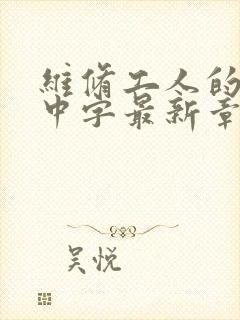 維脩工人的
中字最新章
吴悦